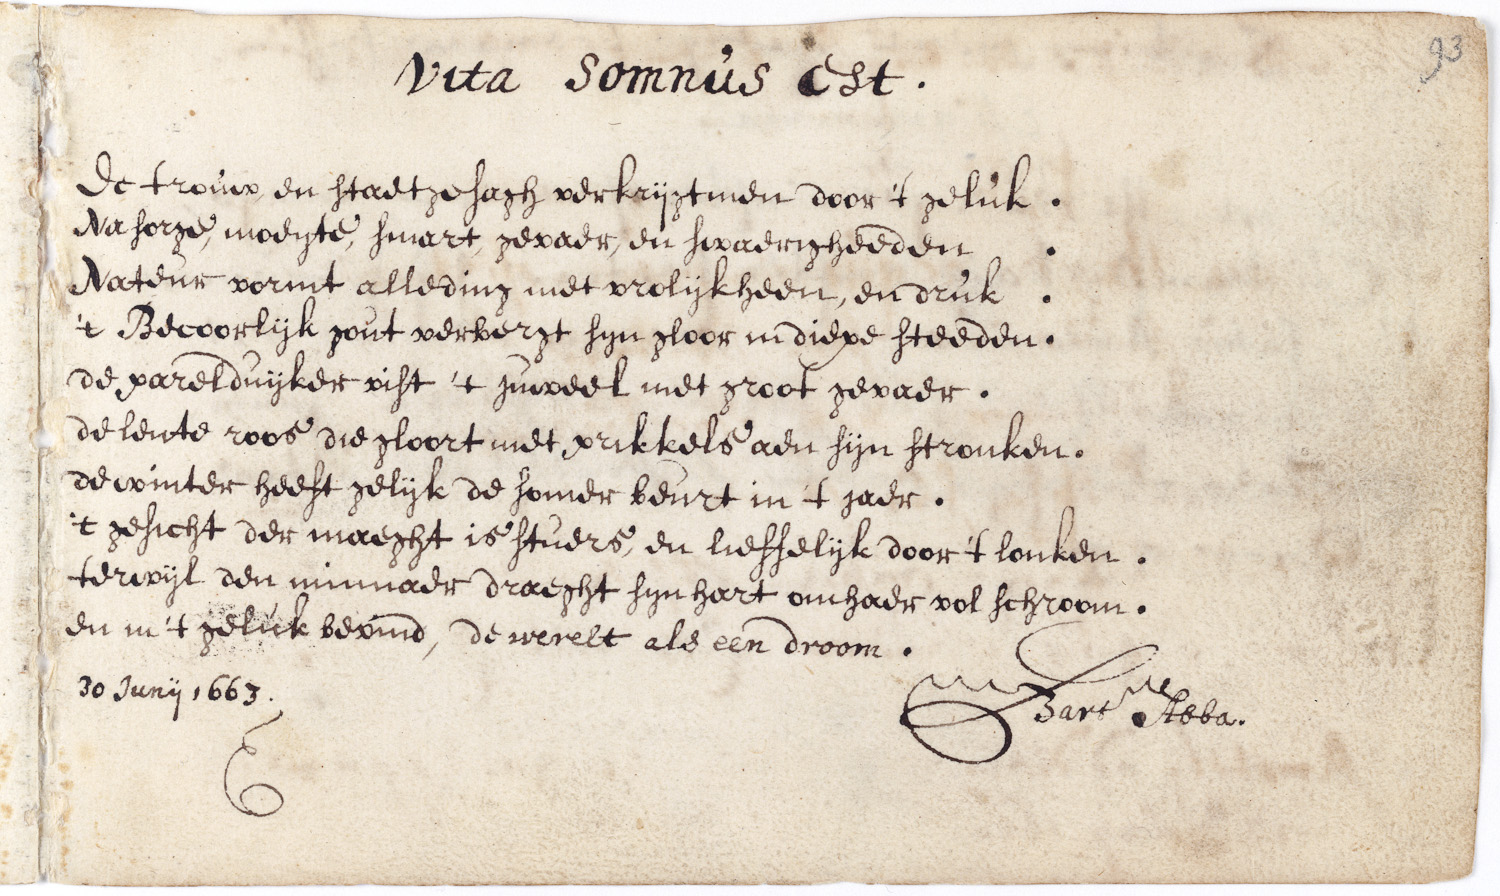 93
Vita Somnus Est.
De trouw, en staetgesagh verkrijgtmen door 't geluk.
Na sorge, moeyte, smart, gevaer, en swaerigheeden.
Nateur vormt alleding met vrolijkheen, en druk.
't Becoorlijk gout verbergt syn gloor in diepe steeden.
de parelduijker vist 't juweel met groot gevaer.
de lente roos die gloort met prikkels aen sijn stronken.
de winter heeft gelijk de somer beurt in 't jaer.
't gesicht der maeght is stuers, en lieffelijk door 't lonken.
terwijl den minnaer draeght syn hart om haer vol schroom.
en in 't geluk bevind, de werelt als een droom.
30 Junij 1663.
Bart Abba.